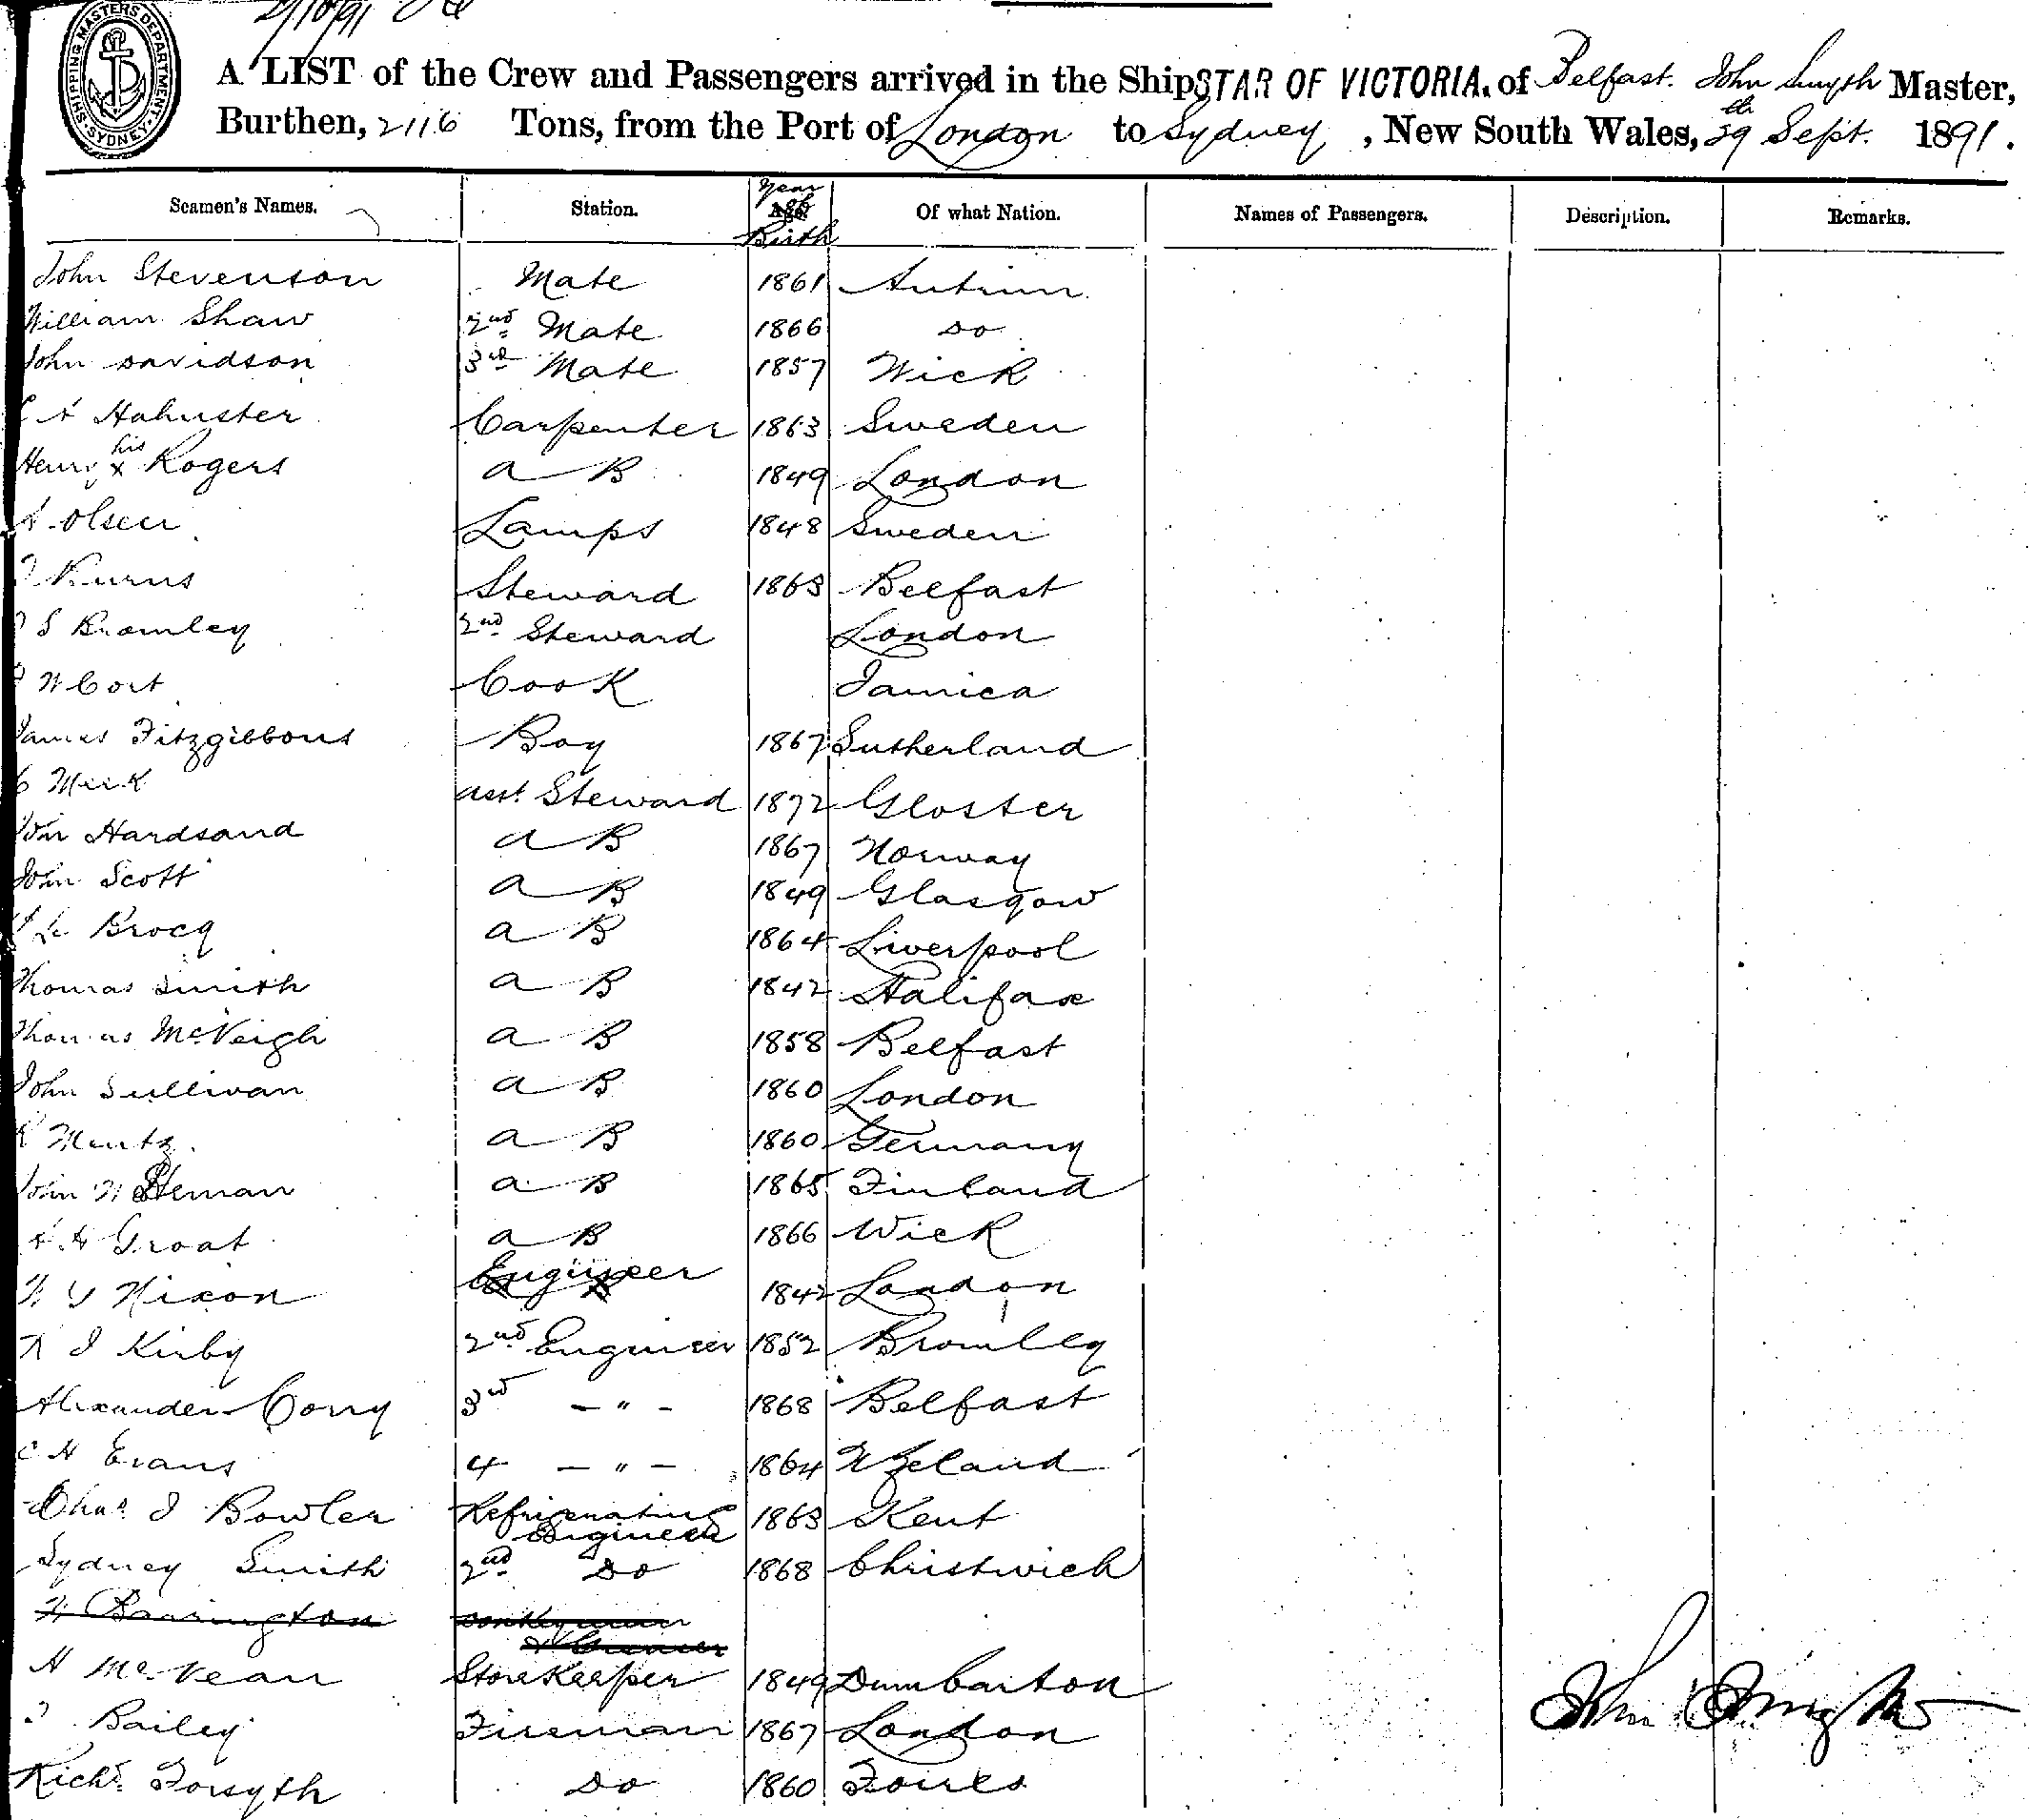 2/10/91
SHIPPING MASTERS DEPARTMENT SYDNEY
A LIST of the Crew and Passengers arrived in the Ship STAR OF VICTORIA. of Belfast. John Smyth Master,
Burthen, 2116 Tons, from the Port of London to Sydney, New South Wales, 29th Sept. 1891.
Seamen's Names. Station. Year of Birth Of what Nation. Names of Passengers. Description. Remarks.
John Stevenson Mate 1861 Antrim
William Shaw 2nd Mate 1866 Do
John Davidson 3rd Mate 1857 Wick
A Hahnster Carpenter 1863 Sweden
Henry his x Rogers A B 1849 London
A. Olsen Lamps 1848 Sweden
Kurns Steward 1863 Belfast
S Bromley 2nd Steward London
W Cort Cook Jamica
James Fitzgibbons Boy 1867 Sutherland
C Meek asst. Steward 1872 Gloster
Hardsand A B 1867 Norway
John Scott A B 1849 Glasgow
Le Brocq A B 1864 Liverpool
Thomas Smith A B 1842 Halifax
Thomas McVeigh A B 1858 Belfast
John Sullivan A B 1860 London
R Mentz. A B 1860 Germany
John W Steman A B 1865 Finland
Groat A B 1866 Wick
W Y Nixon Engineer 1842 London
Kirby 2nd Engineer 1852 Bromley
Alexander Corry 3rd - " - 1868 Belfast
C H Evans 4 - " - 1864 N Zeland
Chas. J Bowler Refrigerating Engineer 1863 Kent
Sydney Smith 2nd Do 1868 Christwich
W Barrington Donkeyman & Greaser
A McVean Storekeeper 1849 Dumbarton
Bailey Fireman 1867 London
Richd. Forsyth Do 1860 Forres
John Smyth